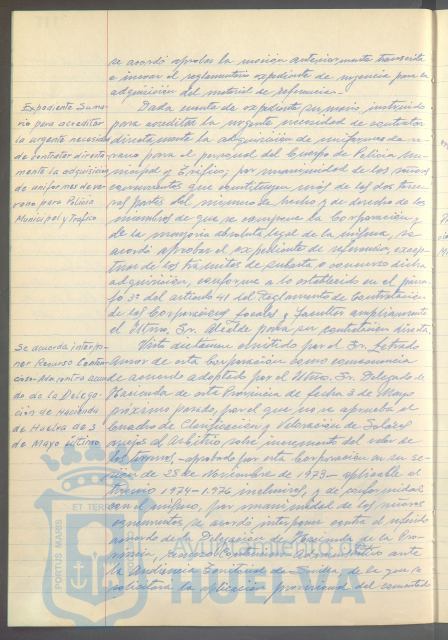 se acordó aprobar la moción anteriormente transcrita
e incoar el reglamentario expediente de urgencia para la
adquisición del material de referencia.-
Expediente Suma-
rio para acreditar
la urgente necesidad
de contratar directa-
mente la adquisición
de uniformes de ve-
rano para Policía
Municipal y Tráfico
Dada cuenta de expediente sumario instruido
para acreditar la urgente necesidad de contratar
directamente la adquisición de uniformes de ve-
rano para el personal del Cuerpo de Policía Mu-
nicipal y Tráfico, por unanimidad de los señores
concurrentes que constituyen más de las dos terce-
ras partes del número de hecho y de derecho de los
miembros de que se compone la Corporación y
de la mayoría absoluta legal de la misma, se
acordó aprobar el expediente de referencia, excep-
tuar de los trámites de subasta o concurso dicha
adquisición, conforme a lo establecido en el párra-
fo 3º del artículo 41 del Reglamento de Contratación
de las Corporaciones Locales y facultar ampliamente
al Iltmo. Sr. Alcalde para su contratación directa.
Se acuerda interpo-
ner Recurso Conten-
cioso-
contra acuer-
do de la Delega-
ción de Hacienda
de Huelva de 3
de Mayo último.
Visto dictamen emitido por el Sr. Letrado
Asesor de esta Corporación como consecuencia
de acuerdo adoptado por el Iltmo. Sr. Delegado de
Hacienda de esta Provincia de fecha 3 de Mayo
próximo pasado, por el que no se aprueba el
Cuadro de Clasificación y Valoración de Solares
anejo al Arbitrio sobre incremento del valor de
los terrenos, -aprobado por esta Corporación en su se-
sión de 28 de Noviembre de 1973- aplicable al
trienio 1974-1976 inclusives, y de conformidad
con el mismo, por unanimidad de los señores
concurrentes se acordó interponer contra el referido
acuerdo de la Delegación de Hacienda de la Pro-
vincia, recurso Contencioso Administrativo ante
la Audiencia Territorial de Sevilla de la que se
solicitará la aplicación provisional del comentado
PORTUS MARIS
ET TERR
Ayuntamiento de
HUELVA